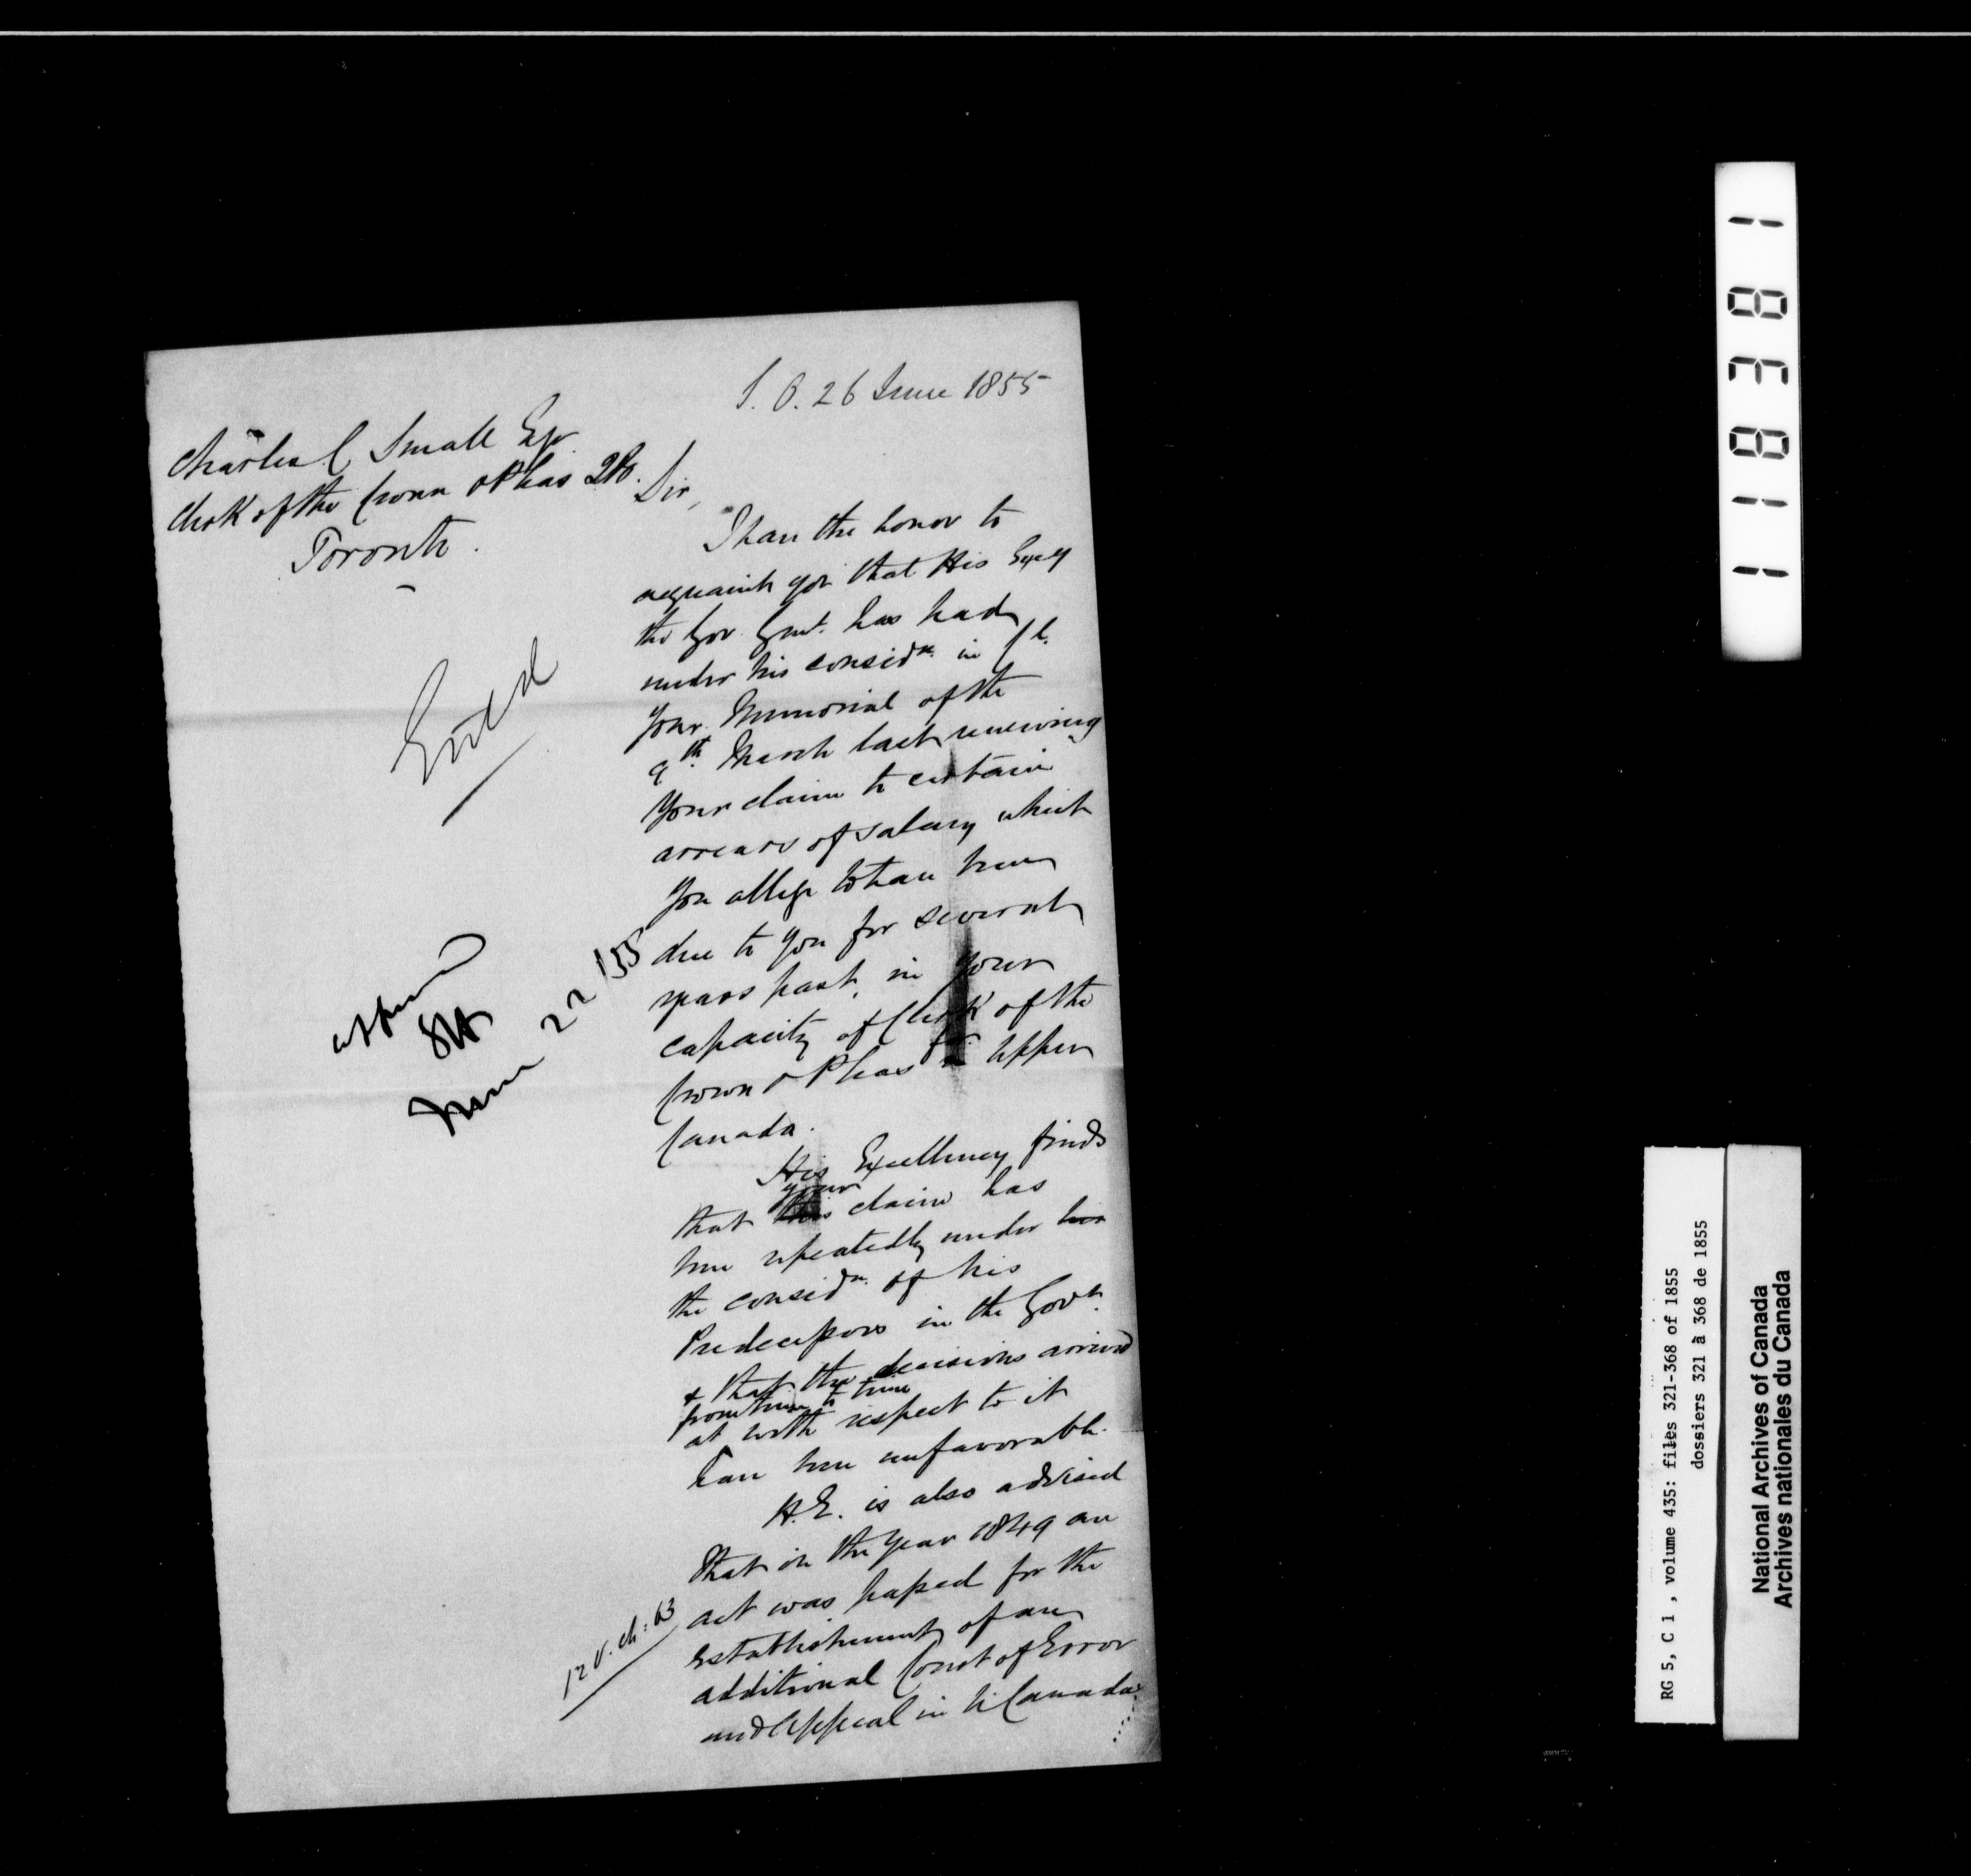 S. O. 26 June 1855
Charles C Small Esqr
Clerk of the Crown & Pleas QB.
Toronto.
Sir,
I have the honor to
acquaint you that His Excy
the Gov. Genl. has had
under his considn. in C C.
your Memorial of the
9th. March last renewing
your claim to certain
arrears of salary which
you allege to have been
due to you for several
years past, in your
capacity of Clerk of the
Crown & Pleas for Upper
Canada.
His Excellency finds
your
that this claim has
been repeatedly under his
the considn. of his
Predecessors in the Govt.
& that the decisions arrived
from time to time
at with respect to it
have been unfavorable.
H.E. is also advised
that in the year 1849 an
act was passed for the
establishment of an
additional Court of Error
and Appeal in U Canada
Entd
approved
June 22/55
12 V. ch: 63
118381
RG 5, C 1, volume 435: files 321-368 of 1855
dossiers 321 à 368 de 1855
National Archives of Canada
Archives nationales du Canada